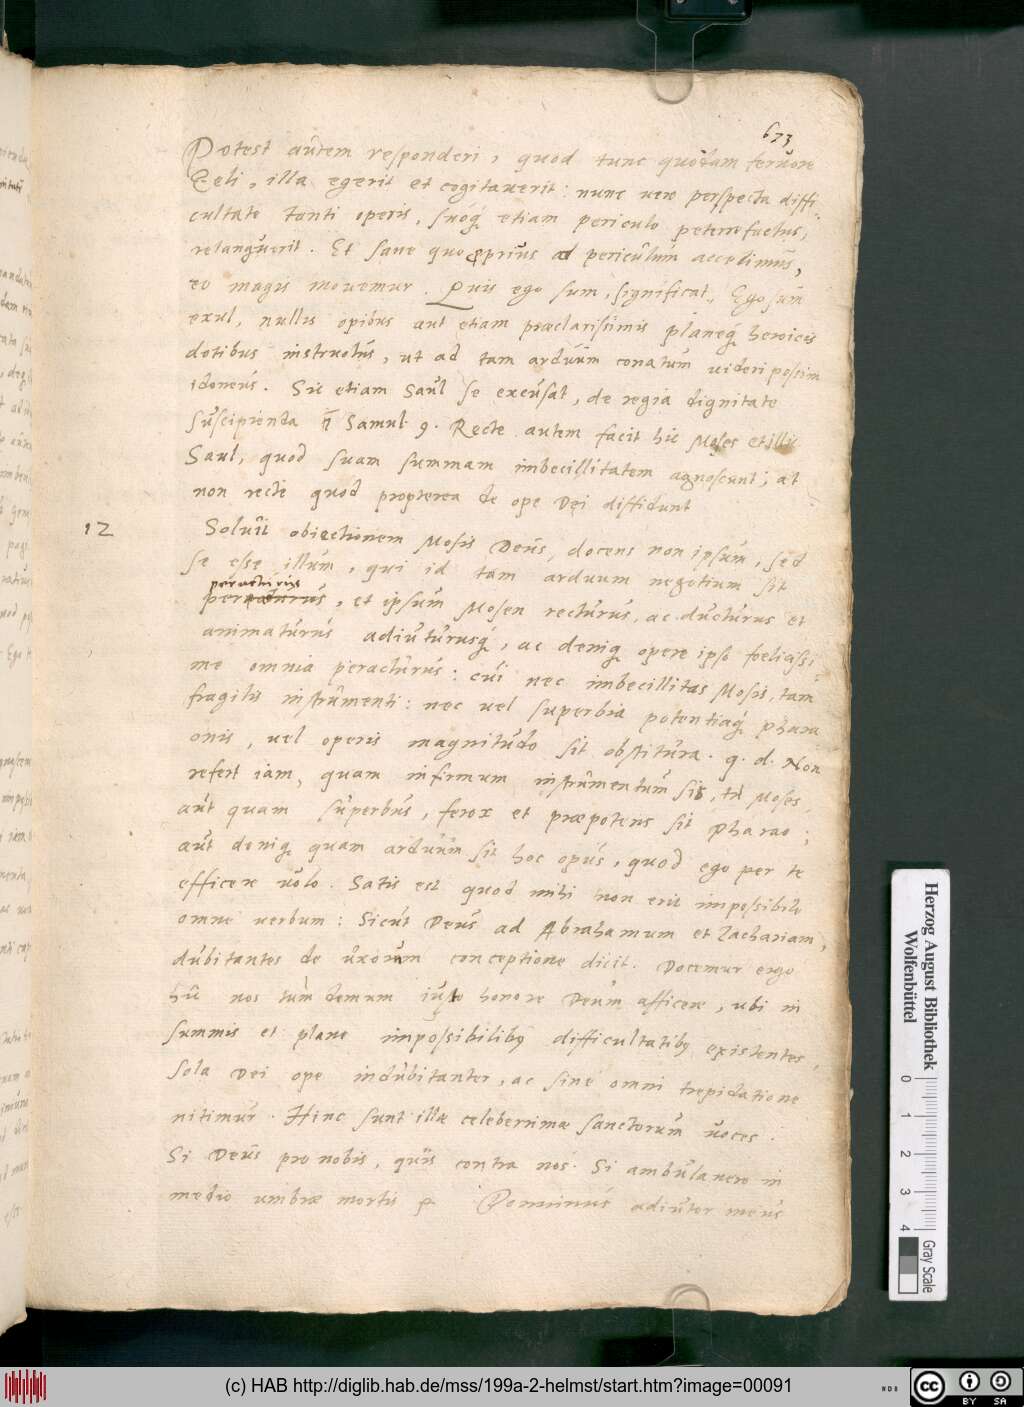 673
Potest autem responderi, quod tunc quodam fervore
Zeli, illa egerit et cogitaverit: nunc vere perspecta diffi-
cultate tanti operis, suoq́ etiam periculo peterrefactus,
relanguerit. Et sane quo proprius ad periculum accedimus,
eo magis movemur. Quis ego sum, significat, Ego sum
exul, nullis opibus aut etiam præclarissimis planeq́ heroicis
dotibus instructus, ut ad tam arduum conatum videri possim
idoneus. Sic etiam Saul se excusat, de regia dignitate
suscipienda 1 Samul 9. Recte autem facit hic Moses et illic
Saul, quod suam summam imbecillitatem agnoscunt; at
non recte quod propterea de ope Dei diffidunt
12
Soluit obiectionem Mosis Deus, docens non ipsum, sed
se esse illum, qui id tam arduum negotium sit
peracturus
peracturus, et ipsum Mosen recturus, ac ducturus et
animaturus adiuturusq́, ac deniq́ opere ipso foelicissi-
me omnia peracturus: cui nec imbecillitas Mosis, tam
fragilis instrumenti: nec vel superbia potentiaq́ Phara
onis, vel operis magnitudo sit obstitura. q. d. Non
refert iam, quam infirmum instrumentum sis, tu Moses,
aut quam superbus, ferox et præpotens sit Pharao;
aut deniq́ quam arduum sit hoc opus, quod ego per te
efficere volo. Satis est quod mihi non erit impossibile
omne verbum: Sicut Deus ad Abrahamum et Zachariam,
dubitantes de uxorum conceptione dicit. Docemur ergo
hic nos tum demum iusto honore Deum afficere, ubi in
summis et plane impossibilibꝰ difficultatibꝰ existentes,
sola Dei ope indubitanter, ac sine omni trepidatione
nitimur. Hinc sunt illæ celeberrimæ sanctorum voces.
Si Deus pro nobis, quis contra nos. Si ambulavero in
medio umbræ mortis Dominus adiutor meus
Herzog August Bibliothek
Wolfenbüttel
0 1 2 3 4
Gray Scale
(c) HAB http://diglib.hab.de/mss/199a-2-helmst/start.htm?image=00091
cc BY SA